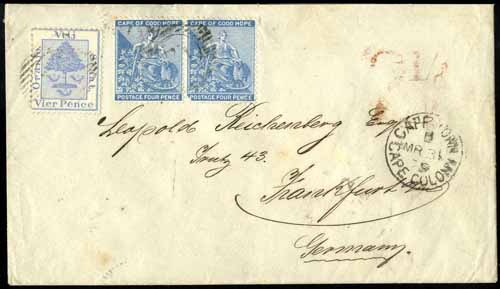 VRIJ
Oranje Staat
Vier Pence
CAPE OF GOOD HOPE
POSTAGE FOUR PENCE
CAPE OF GOOD HOPE
POSTAGE FOUR PENCE
CAPE TOWN
B
MR 31
CAPE COLONY
Leopold Reichenberg Esq
43.
Frankfurt
Germany.